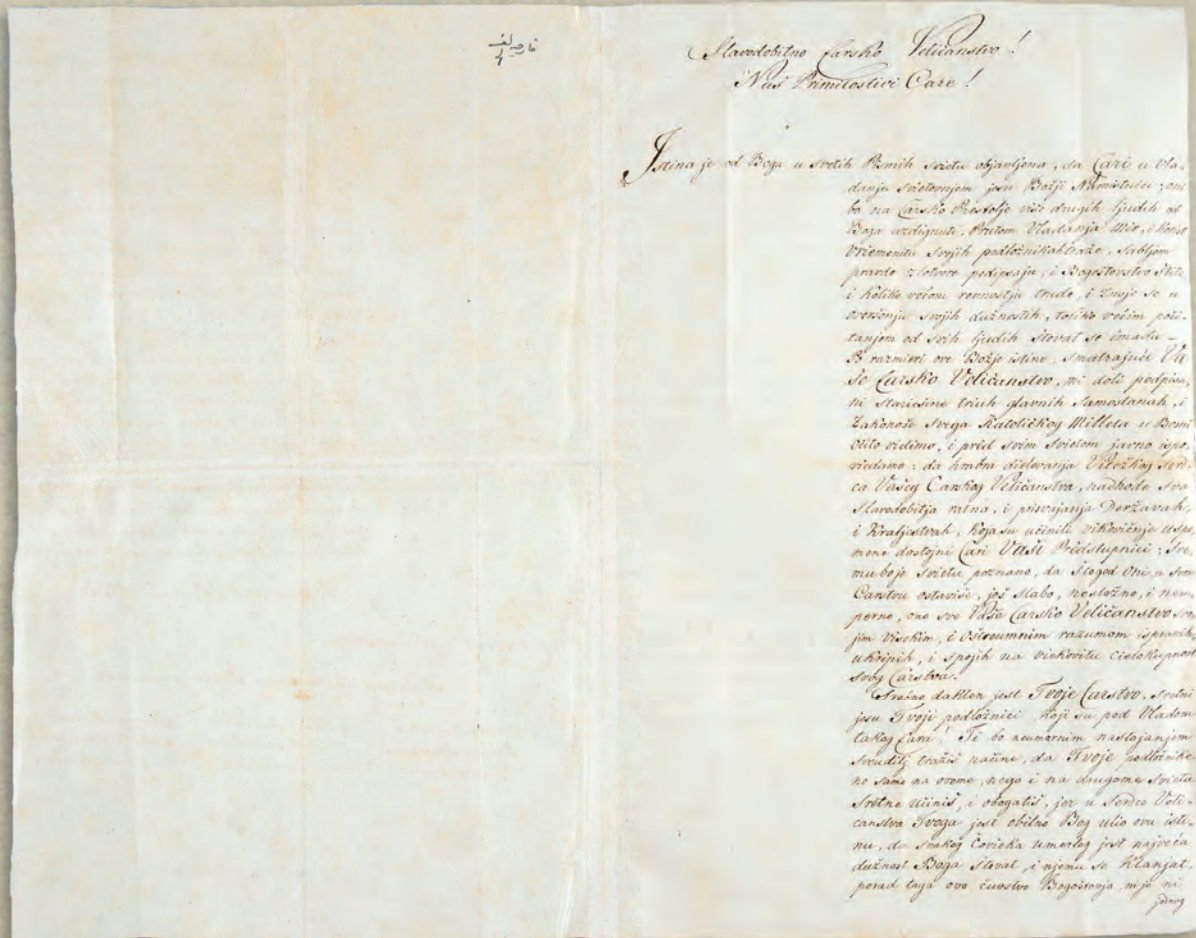 خارجيه لف
٤
Slavodobitno Carsko Veličanstvo!
Naš Primilostivi Care!
Istina je od Boga u svetih Pismih svietu objavljena, da Cari u Vla-
danju svietovnjem jesu Božji Namistnici; oni
bo na Carsko Prestolje više drugih ljudih od
Boga uzdignuti, Putom Vladanja Mir, i Korist
Vriemenitu svojih podložnikah traže, sabljom
pravde zlotvore pedipsaju, i Bogoštovstvo štite
i koliko većom revnostju trude, i znoje se u
overšenju svojih dužnostih, toliko većim pošti-
tanjem od svih ljudih štovat se imadu –
Po razmieri ove Božje istine, smatrajući Va
še Carsko Veličanstvo, mi doli podpisa-
ni Stariešine triuh glavnih Samostanah, i
Zakonoše svega Katoličkog Milleta u Bosni
Očito vidimo, i pred svim svietom javno ispo-
viedamo: da hrabra dielovanja Vitežkog serd-
ca Vašeg Carskog Veličanstva, nadhode sva
Slavodobitja ratna, i prisvajanja Deržavah,
i Kraljestvah, koja su učinili vikovičnje uspo
mene dostojni Cari Vaši Predstupnici; sve-
mu bo je svietu poznano, da štogod Oni u svom
Carstvu ostaviše, još slabo, nesložno, i neu
perno, ono sve Vaše Carsko Veličanstvo svo
jim visokim, i oštroumnim razumom ispravih,
ukripih, i spojih na viekovitu cielokupnost
svog Carstva.
Sretno daklen jest Tvoje Carstvo, sretni
jesu Tvoji podložnici koji su pod Vladom
takog Cara! Ti bo neumornim nastojanjem
sveudilj tražiš načine, da Tvoje podložnike
ne samo na ovome, nego i na drugome svietu
sretne učiniš, i obogatiš, jer u serdce Veli-
canstva Tvoga jest obilno Bog ulio ovu isti-
nu, da svakog čovieka umerlog jest najveća
dužnost Boga štovat, i njemu se klanjat.
porad toga ovo čuvstvo Bogoštovja, nije ni
jednog